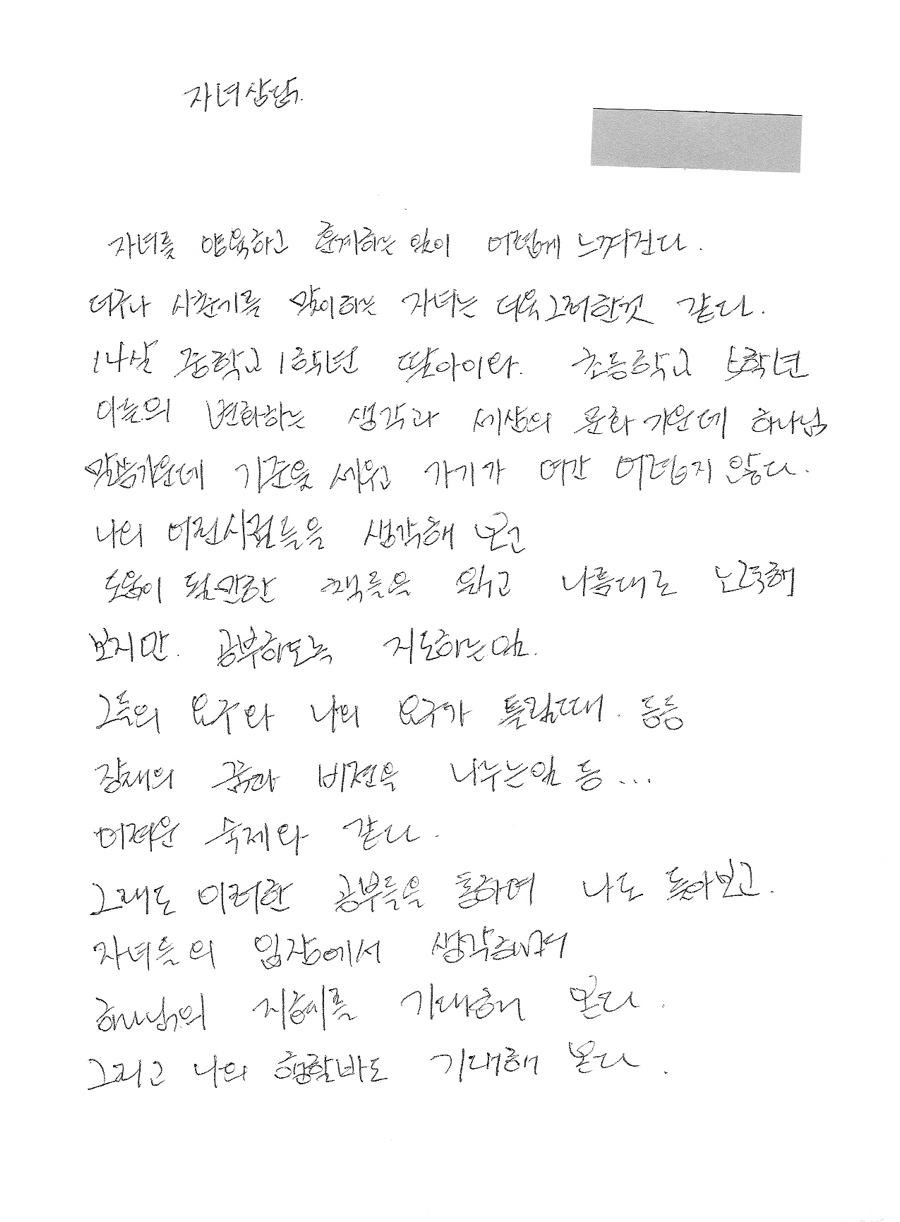 자녀상담.
자녀를 양육하고 훈계하는 일이 어렵게 느껴진다.
더구나 사춘기를 맞이하는 자녀는 더욱 그러한것 같다.
14살 중학교 1학년 딸아이와. 초등학교 5학년
이들의 변화하는 생각과 세상의 문화 가운데 하나님
말씀가운데 기준을 세워 가기가 여간 어렵지 않다.
나의 어린시절들을 생각해 보고
도움이 될만한 책들을 읽고 나름대로 노력해
보지만. 공부하도록 지도하는일.
그들의 요구와 나의 요구가 틀릴때. 등등
장래의 꿈과 비젼을 나누는일 등...
어려운 숙제와 같다.
그래도 이러한 공부들을 통하여 나도 돌아보고.
자녀들의 입장에서 생각하며
하나님의 지혜를 기대해 본다.
그리고 나의 행할바도 기대해 본다.